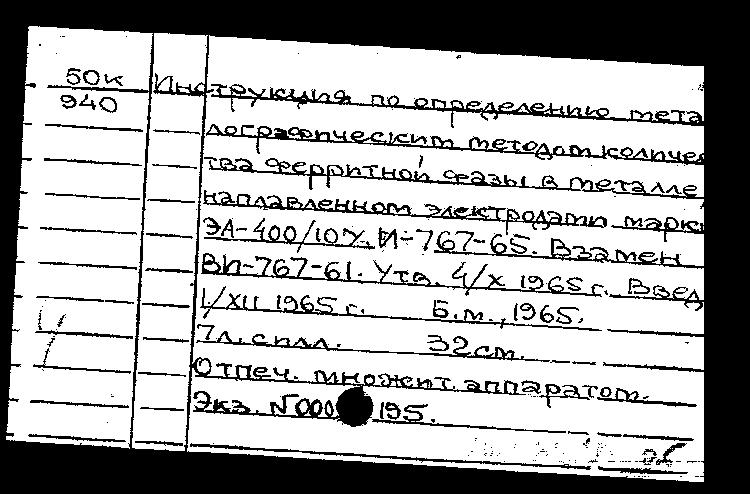 50к
940
Инструкция по определению мета
лографическим методом количес
тва ферритной фазы в металле
наплавленном электродами марки
ЭА-400/10У. И-767-65. Взамен
ВИ-767-61. Утв. 4/X 1965 г. Введ
1/XII 1965 г. Б.м., 1965.
7л. с илл. 32 см.
Отпеч. множит. аппаратом.
Экз. №000 195.